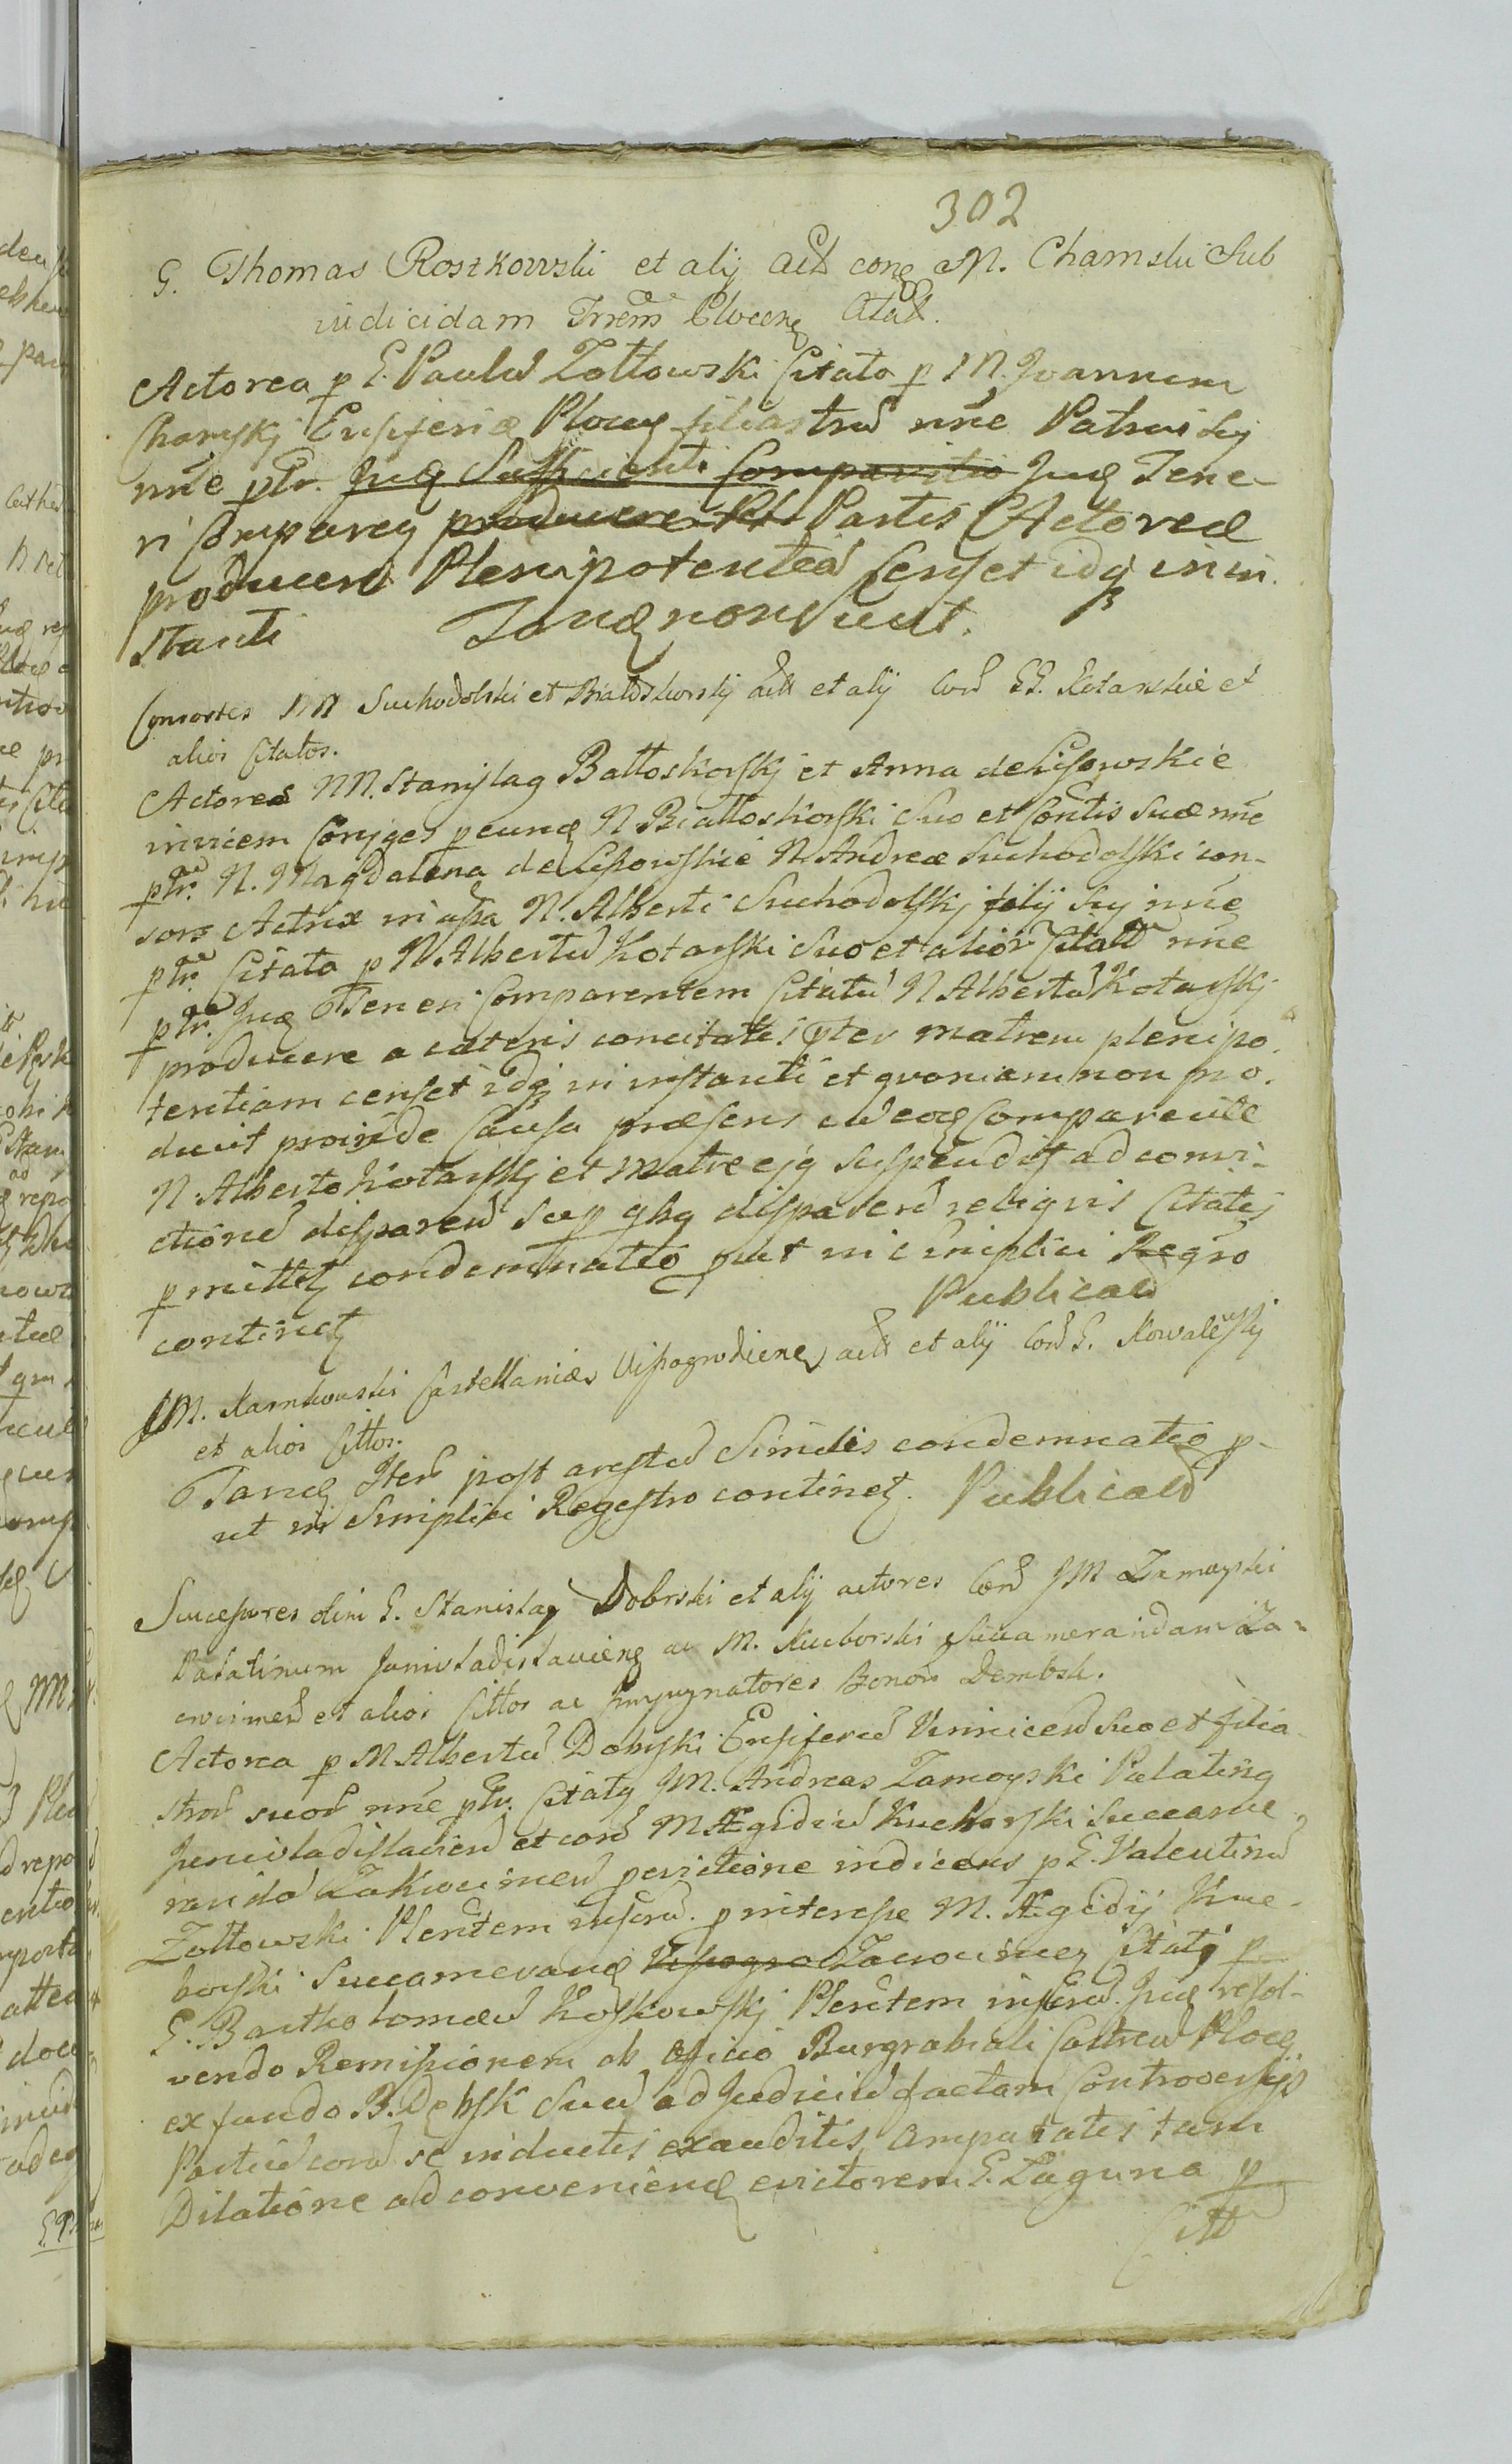 302
G. Thomas Roszkowski et alij act conq M. Chamski Sub
iudicidam Trrem Plocenq Citat.
Actorea p G. Paulu Zołtowski Citato p M. Joannem
Chamskj Ensiferiæ Plocen filiastru nne Patrui sÿ
nne ptr. Juq Sufficienti Comparitio Juq Tene-
ri Comparenq producere Pl Partis Actoreæ
producere Plenipotentea censet idq in in.
stanti
Consortes MM Suchodolski et Białoskorskj act et alij Con GG. Kotarskie et
alios Citatos.
Actorea NN. Stanislaq Białłoskorskj et Anna de Lisowskie
invicem Conjges p eunq N Białłoskorski Suo et Contis Suæ nne
ptr. N. Magdalena de Lisowskie N. Andreæ Suchodolski con-
sors Actrix in assa N. Alberti Suchodolskj filij suj nne
ptr. Citata p N Albertu Kotarski Suo et alior Citat nne
ptr. Juq Teneri Comparentem Citatu N Albertu Kotarskj
producere a cæteris concitatis pter matrem plenipo.
tentiam censet idq in instanti et quoniam non pro.
duxit proinde Causa præsens cu eoq Comparente
N. Alberto Kotarskj et Matre ejq suspendit ad convi-
ctione disparen Sup qbq disparen reliquis Citatis
pmittitq condemnatio put in Simplici Regro
continetq Publicat
JM. Karnkowski Castellaniæ Wisogrodienq act et alij Con G. Kowalewskj
et alios Cittos.
Tanq Iten post arestu Similis condemnatio p-
ut in Simplici Regestro continetq. Publicat
Succesores olim G. Stanislaq Dobrski et alij actores Con JM Zamoyski
Palatinum Junivladislavienq ac M. Kuborski Succameraridam Za-
wcrinen et alios Cittos ac Impugnatores Bonor Dembsk.
Actorea p M Albertu Dobrski Ensiferu Vinnicen Suo et filia-
stror suor nne ptr. Citatq JM. Andreas Zamoyski Palatinq
Junivladislavien et con M Ægidiu Kuborski Succame-
rarida Zakrocimen pevictione indicens p G. Valentinu
Zołtowski Plentem inseru. p interesse M. Ægidij Ku-
borski Succameranq Wisogro Zacrocimenq Citatj p
G. Bartholomæu Koskowskj Plentem inseru. Juq resol-
vendo Remissionem ab Officio Burgrabiali Castren Plocq
ex fundo B. Dębsk Suu ad Judiciu factam Controversijs
Partiu cora se inductis exauditis, Comparatis tam
Dilatione ad convenienq evictorem G. Laguna p
Citt